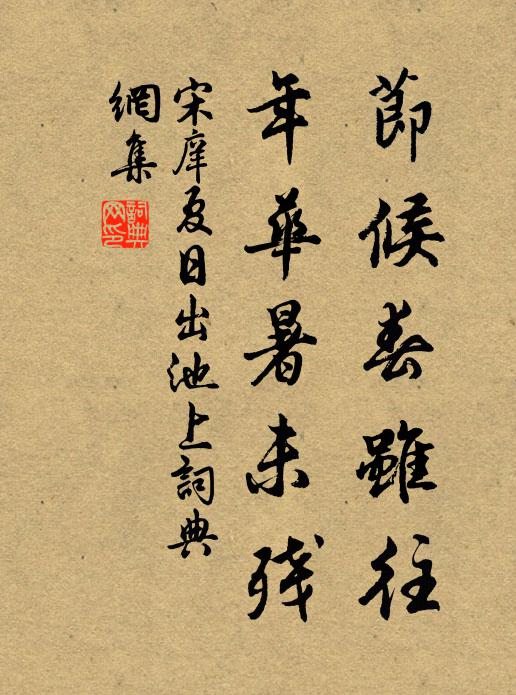 節候春雖往
年華暑未残
宋庠夏日出池上詞典
網集
詞典網印